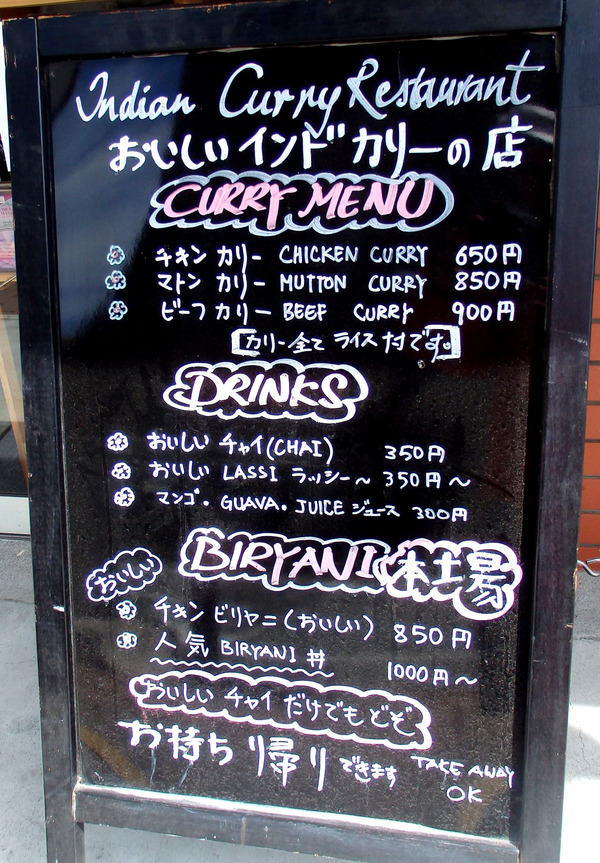 Indian Curry Restaurant
おいしいインドカリーの店
CURRY MENU
チキン カリー CHICKEN CURRY 650円
マトン カリー MUTTON CURRY 850円
ビーフ カリー BEEF CURRY 900円
[カリー全て ライス付です。]
DRINKS
おいしい チャイ(CHAI) 350円
おいしい LASSI ラッシー〜 350円〜
マンゴ・GUAVA・JUICE ジュース 300円
おいしい BIRYANI 本土場
チキン ビリヤニ(おいしい) 850円
人気 BIRYANI 丼 1000円〜
おいしい チャイ だけでもどぞ
お持ち帰りできます TAKE AWAY
OK